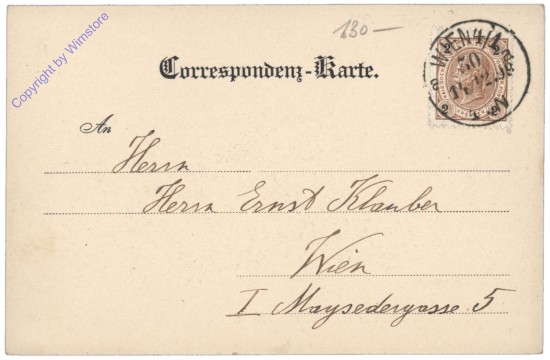 Copyright by Wimstore
130–
Correspondenz-Karte.
WIEN 4/1
50
An
Herrn
Herrn Ernst Klauber
Wien
I Maysedergasse 5